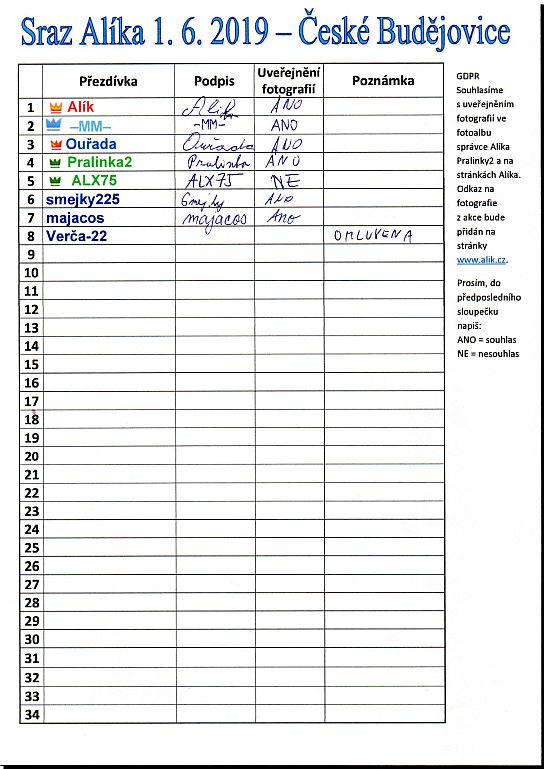 Sraz Alíka 1. 6. 2019 – České Budějovice
Přezdívka Podpis Uveřejnění fotografií Poznámka
1 Alík Alík ANO
2 –MM– –MM– ANO
3 Ouřada Ouřada ANO
4 Pralinka2 Pralinka ANO
5 ALX75 ALX75 NE
6 smejky225 Smejky ANO
7 majacos majacos Ano
8 Verča-22 OMLUVENA
9
10
11
12
13
14
15
16
17
18
19
20
21
22
23
24
25
26
27
28
29
30
31
32
33
34
GDPR
Souhlasíme
s uveřejněním
fotografií ve
fotoalbu
správce Alíka
Pralinky2 a na
stránkách Alíka.
Odkaz na
fotografie
z akce bude
přidán na
stránky
www.alik.cz.
Prosím, do
předposledního
sloupečku
napiš:
ANO = souhlas
NE = nesouhlas